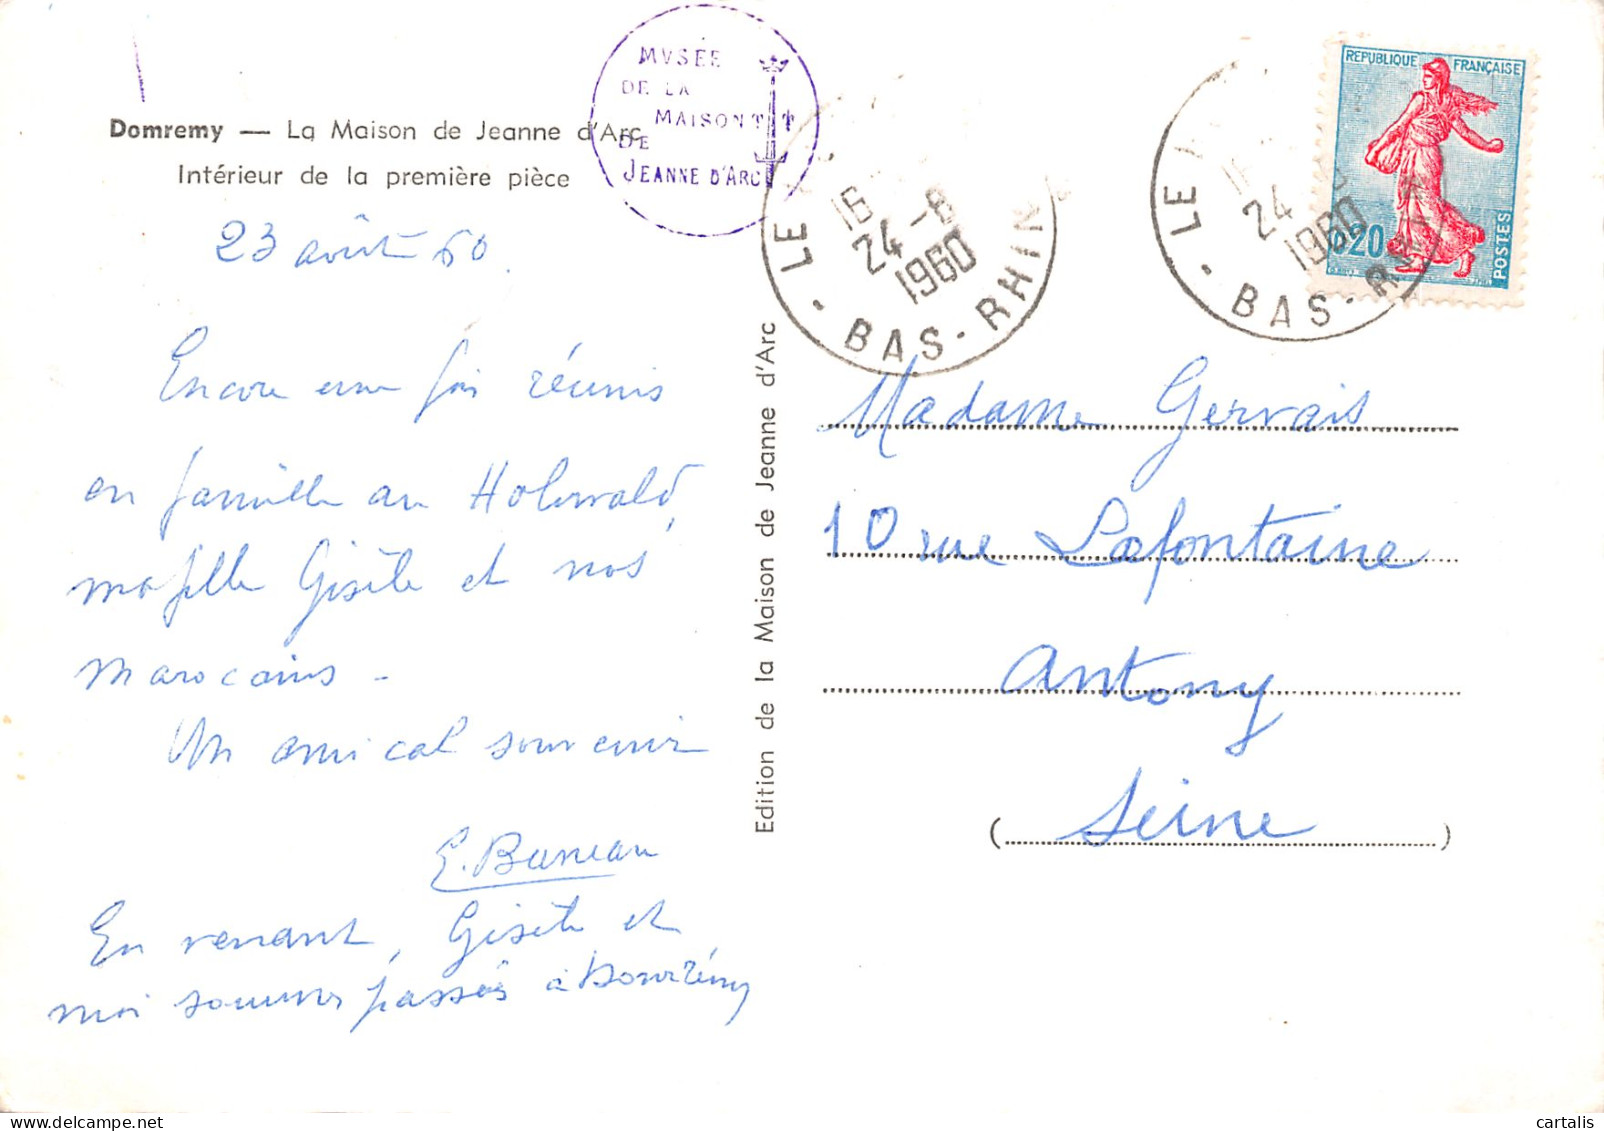 Domremy — La Maison de Jeanne d'Arc
Intérieur de la première pièce
MVSÉE
DE LA
MAISON
DE
JEANNE D'ARC
23 août 60.
Encore une fois réunis
en famille au Hohwald,
ma fille Gisèle et nos
marocains -
Un amical souvenir
E. Buneau
En venant, Gisèle et
moi sommes passées à Domrémy
Edition de la Maison de Jeanne d'Arc
LE
16
24-8
1960
BAS-RHIN
LE
24
1960
BAS-RHIN
REPUBLIQUE FRANÇAISE
0,20
POSTES
Madame Gervais
10 rue Lafontaine
Antony
(Seine)
cartalis